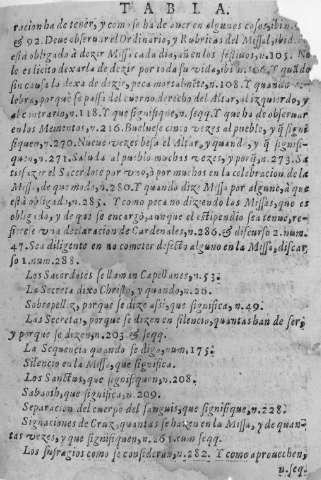 TABLA.
racion ha de tener, y como se ha de auer en algunos casos, ibin.
& 92. Deue obseruar el Ordinario, y Rubricas del Missal, ibid.
està obligado à dezir Missa cada dia, aũ en los festiuos, n. 105. No
le es licito dexarla de dezir por toda su vida, ibi n. 106. Y quãdo
sin causa la dexa de dezir, peca mortalmẽte, n. 108. Y quando ce
lebra, porque se passa del cuerno derecho del Altar, al izquierdo, y
al contrario, n. 118. Y que signifique, n. seqq. Y que ha de obseruar
en los Mementos, n. 216. Bueluese cinco vezes al pueblo, y q̃ signi
fiquen, n. 270. Nueue vezes besa el Altar, y quando, y q̃ signifi-
quen, n. 271. Saluda al pueblo muchas vezes, y porq̃, n. 273. Sa
tisfazer el Sacerdote por vno, ò por muchos en la celebracion de la
Missa, de que modo, n. 280. Y quando dize Missa por alguno, à que
està obligado, n. 285. Y como peca no diziendo las Missas, que es
obligado, y de que se encargò, aunque el estipendio sea tenue, re-
fierese vna declaracion de Cardenales, n. 286. & discurso 2. num.
47. Sea diligente en no cometer defecto alguno en la Missa, discur
so 1. num. 288.
Los Sacerdotes se llaman Capellanes, n. 53.
La Secreta dixo Christo, y quando, n. 26.
Sobrepelliz, porque se dize assi, que significa, n. 49.
Las Secretas, porque se dizen en silencio, quantas han de ser,
y porque se dizen, n. 203. & seqq.
La Sequencia quando se diga, num, 175.
Silencio en la Missa, que significa.
Los Sanctus, que signifiquen, n. 208.
Sabaoth, que significa, n. 209.
Separacion del cuerpo del sanguis, que signifique, n. 228.
Signaciones de Cruz, quantas se hazen en la Missa, y de quan-
tas vezes, y que signifiquen, n. 261. cum seqq.
Los sufragios como se consideran, n. 282. Y como aprouechen,
n. seq.